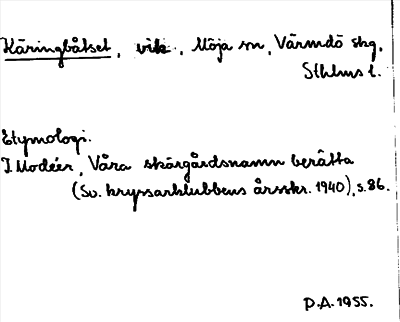 Käringbåtset, vik, Möja sn, Värmdö skg.
Sthlms l.
Etymologi.
I Modéer, Våra skärgårdsnamn berätta
(Sv. kryssarklubbens årsskr. 1940), s. 86.
P.A. 1955.